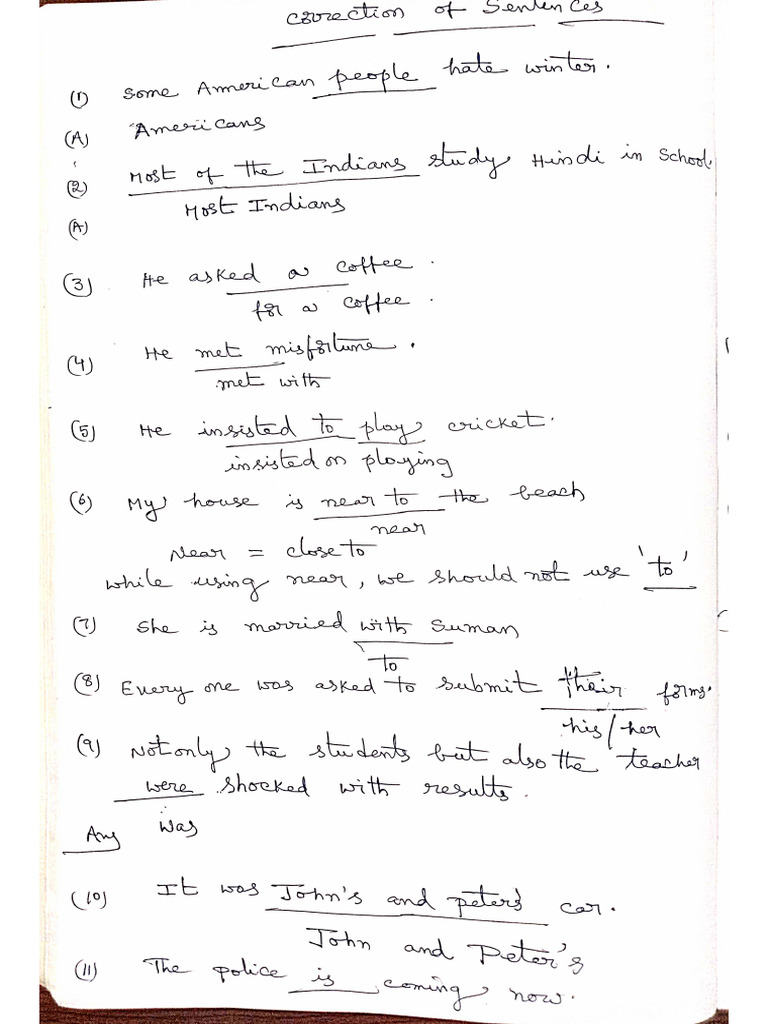 Correction of Sentences
(1) Some American people hate winter.
(A) Americans
(2) Most of the Indians study Hindi in School.
(A) Most Indians
(3) He asked a coffee.
for a coffee.
(4) He met misfortune.
met with
(5) He insisted to play cricket.
insisted on playing
(6) My house is near to the beach
near
Near = close to
while using near, we should not use 'to'
(7) She is married with Suman
to
(8) Every one was asked to submit their forms.
his/her
(9) Not only the students but also the teacher
were shocked with results.
Ans was
(10) It was John's and peter's car.
John and Peter's
(11) The police is coming now.